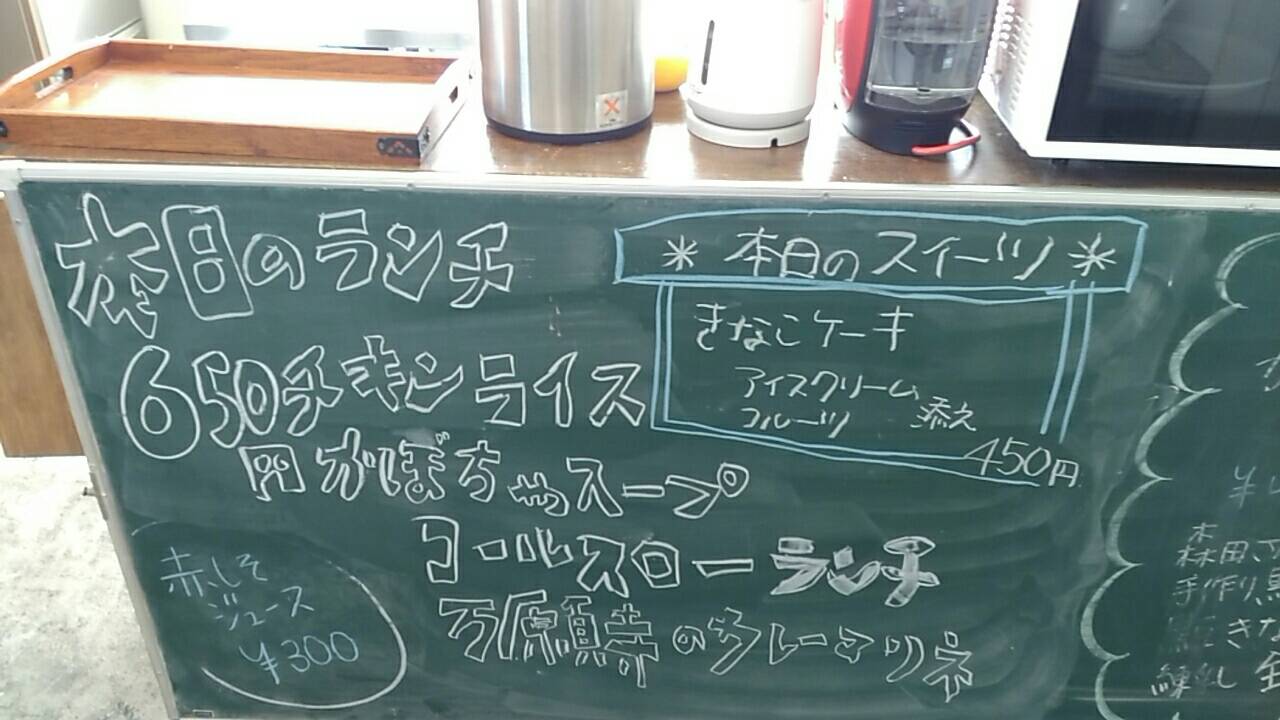 本日のランチ
650チキンライス
円かぼちゃスープ
コールスローランチ
万願寺のクレーマリネ
赤しそ
ジュース
¥300
＊本日のスイーツ＊
きなこケーキ
アイスクリーム
フルーツ 添え
450円
森田さ
手作り
きな
練乳